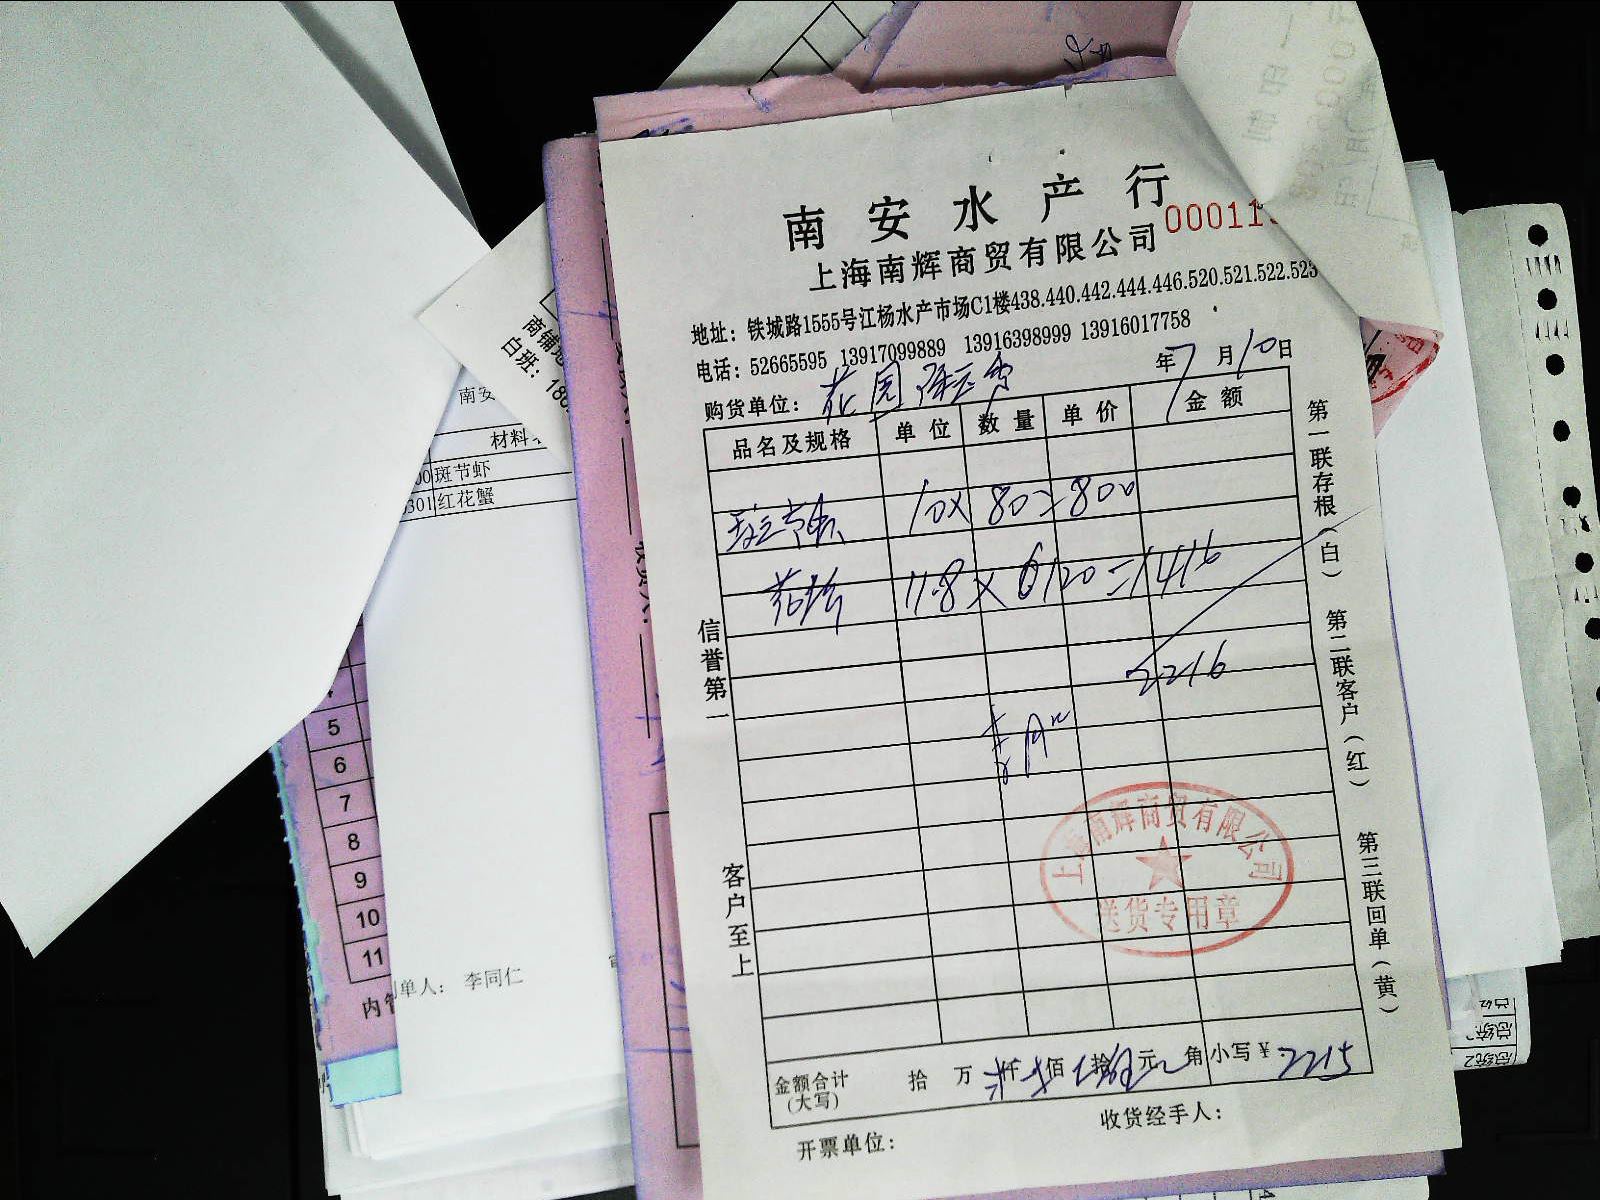 南安水产行
上海南辉商贸有限公司 00011
地址：铁城路1555号江杨水产市场C1楼438.440.442.444.446.520.521.522.523
电话：52665595 13917099889 13916398999 13916017758
购货单位：花园 年7月10日
品名及规格 单位 数量 单价 金额
斑节虾 10×80=800
花蟹 11.8×120=1416
2216
金额合计（大写） 拾 万 仟 佰 拾 元 角 小写￥2215
开票单位： 收货经手人：
信誉第一
客户至上
第一联存根（白） 第二联客户（红） 第三联回单（黄）
上海南辉商贸有限公司
送货专用章
南铺
白班：186
南安
材料
00 斑节虾
301 红花蟹
5
6
7
8
9
10
11
单人： 李同仁
内管